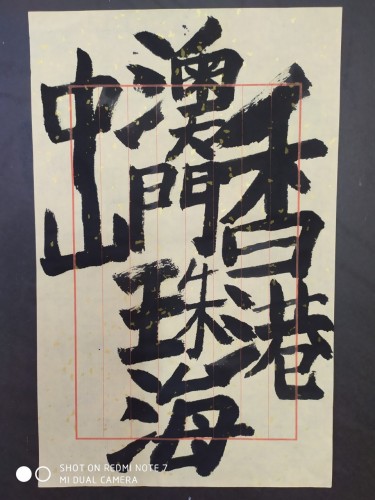 香港
澳門珠海
中山
SHOT ON REDMI NOTE 7
MI DUAL CAMERA